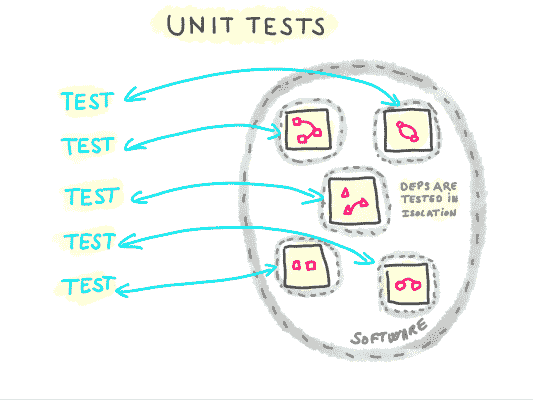 UNIT TESTS
TEST
TEST
TEST
TEST
TEST
DEPS ARE
TESTED IN
ISOLATION
SOFTWARE